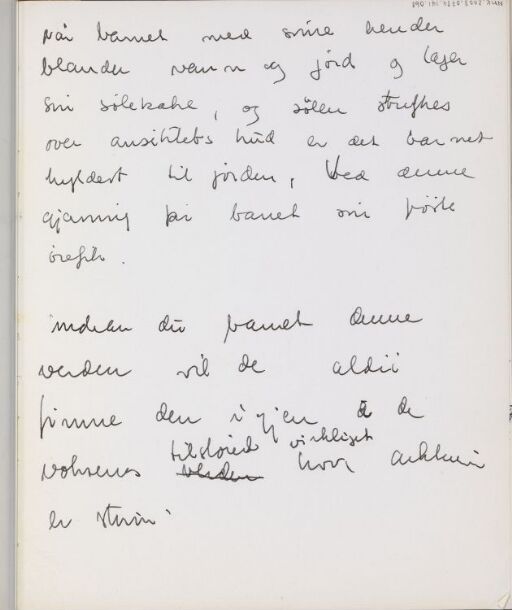 Når barnet med sine hender
blander vann og jord og lager
sin sølekake, og sølen strykes
over ansiktets hud er det barnet
hyldest til jorden, Ved denne
gjerning får barnet sin første
ørefik.
barnet denne
verden vil de aldri
finne den igjen i de
voksenes tilslørte virkelighet hvor
er